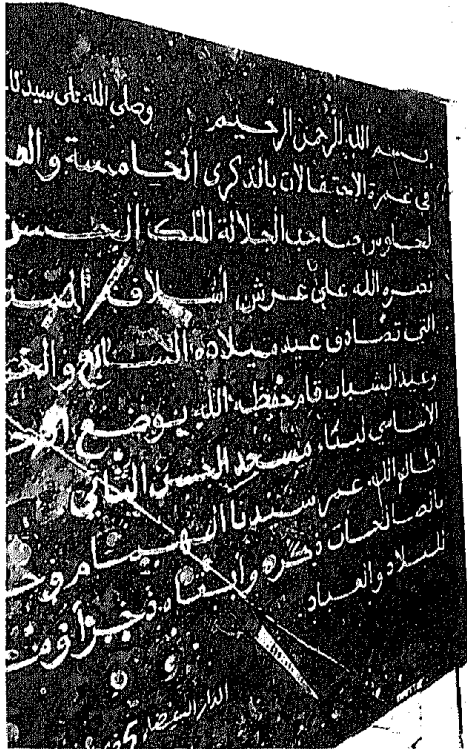 بسم الله الرحمن الرحيم وصلى الله على سيدنا
في غمرة الاحتفالات بالذكرى الخامسة والعشـ
لجلوس صاحب الجلالة الملك الحسن
نصره الله على عرش أسلافه
التي تصادف عيد ميلاده السـ
وعيد الشباب قام حفظه الله بوضع الحجـ
الأساسي لبناء مسجد الحسن الثاني
أطال الله عمر سيدنا الهمام
بالصالحات ذكره وأبقاه ذخرا
للبلاد والعباد
الدار البيضاء